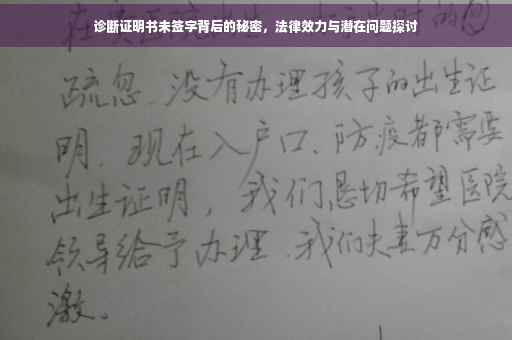 诊断证明书未签字背后的秘密，法律效力与潜在问题探讨
疏忽.没有办理孩子的出生证
明.现在入户口、防疫都需要
出生证明，我们恳切希望医院
领导给予办理.我们夫妻万分感
激。